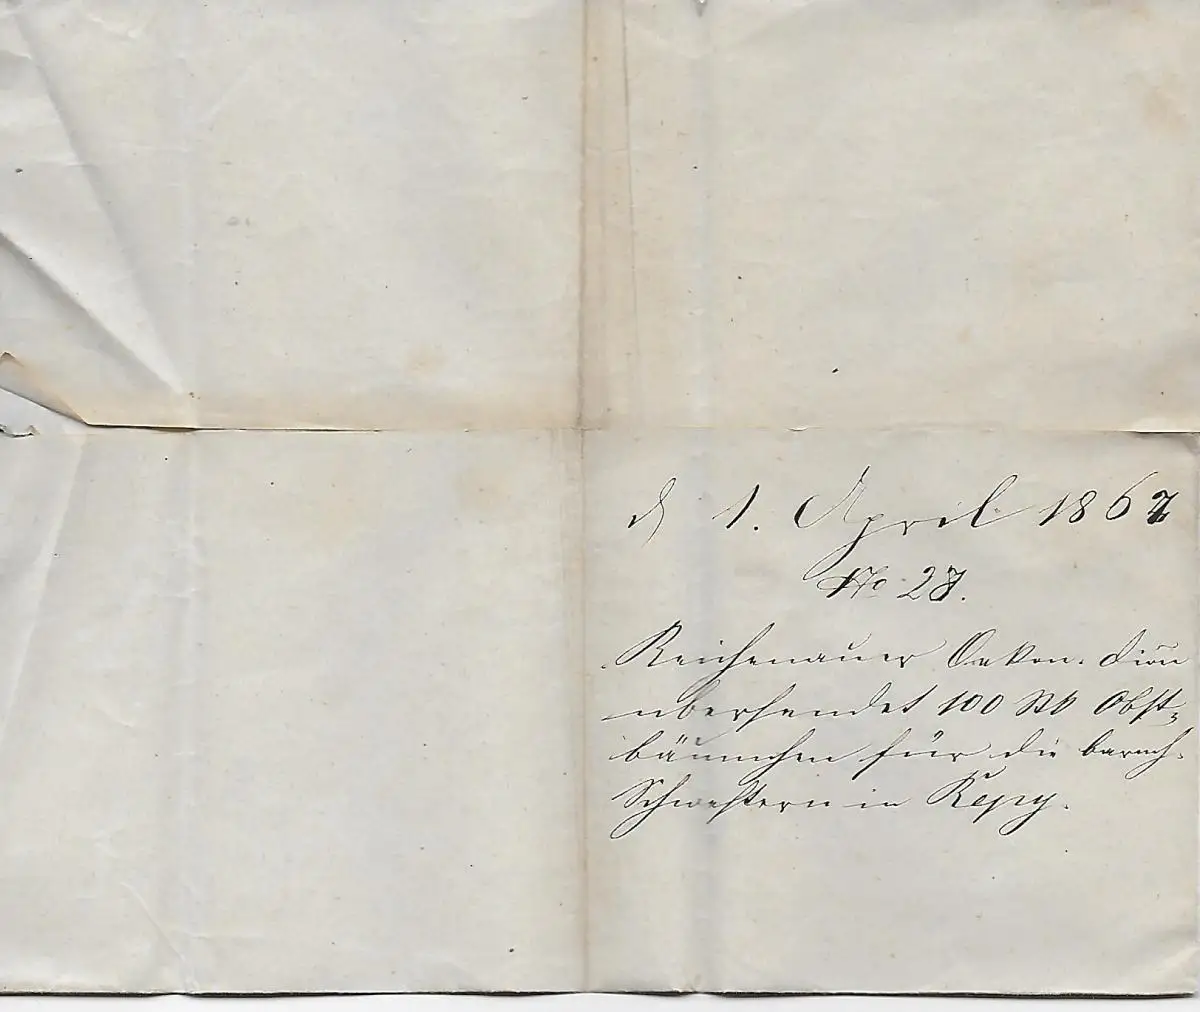 d 1. April 1867
No 27.
Reichenauer Oekon. Dion
übersendet 100 Stk Obst-
bäumchen für die barmh.
Schwestern in Repy.